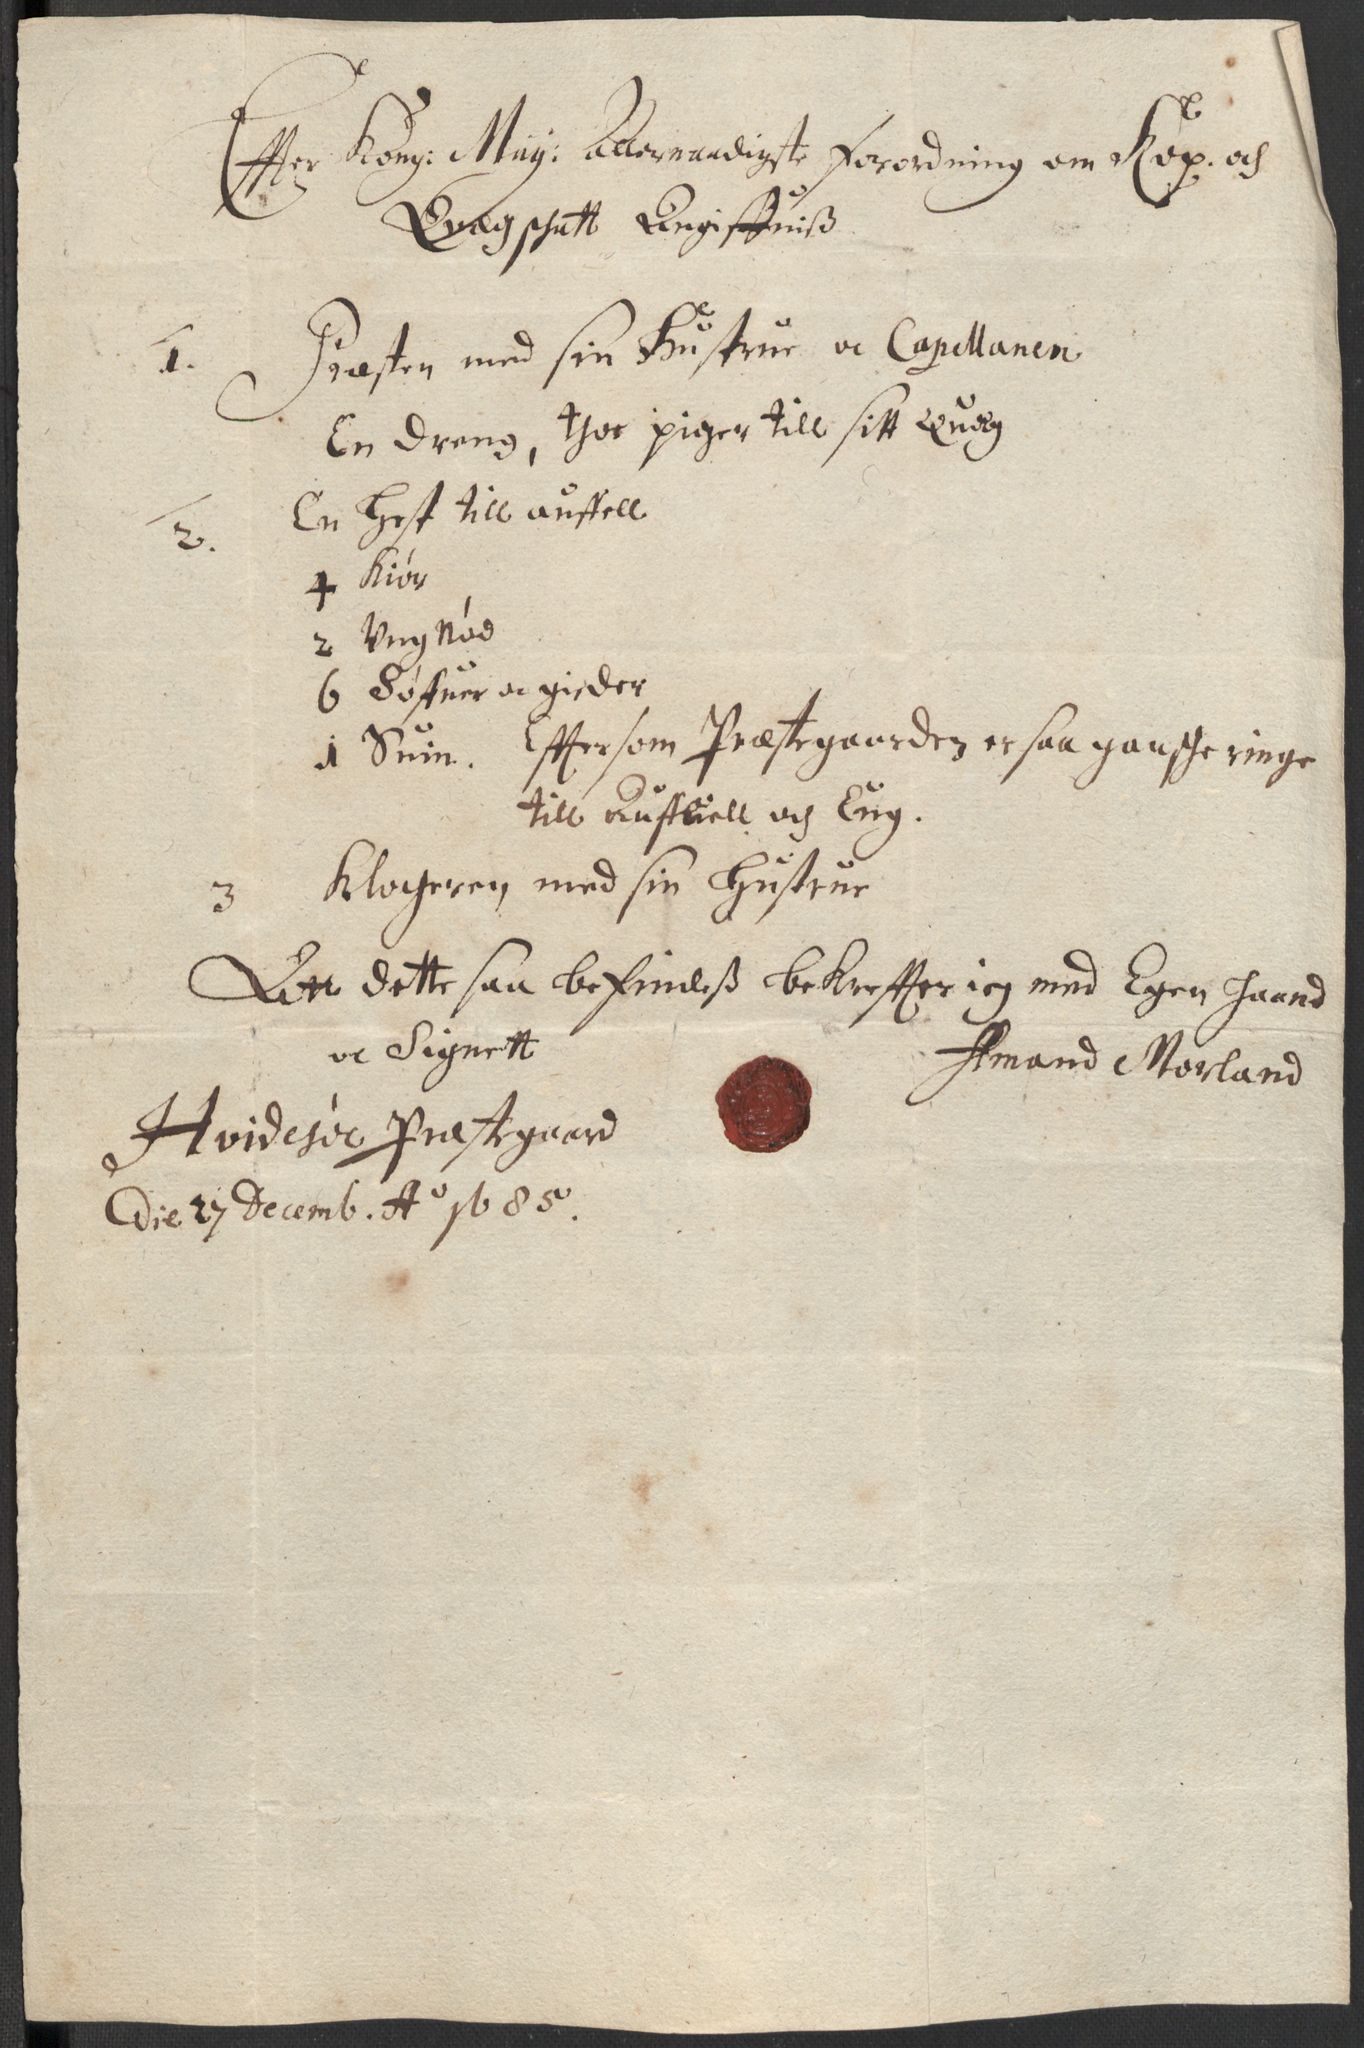 Effter Kong: May: Allernaadigste forordning om Kop. och
Qvægschatt Angiffvniß
1. Præsten med sin Hustrue oc Capellanen
En dreng, thoe piger till sitt Quæg
2. En Hest till auffell
4 Kiør
2 Ungnød
6 Søffuer oc gieder
1 Suin. Effter som Præstegaarden er saa gansche ringe
till Auffuell och Eng.
3 Klocheren med sin Hustrue
Att dette saa befindeß bekreffter ieg med Egen haand
oc Signett
Amand Morland
Hvidesøe Præstegaard
Die 27 Decemb. Aº 1685.